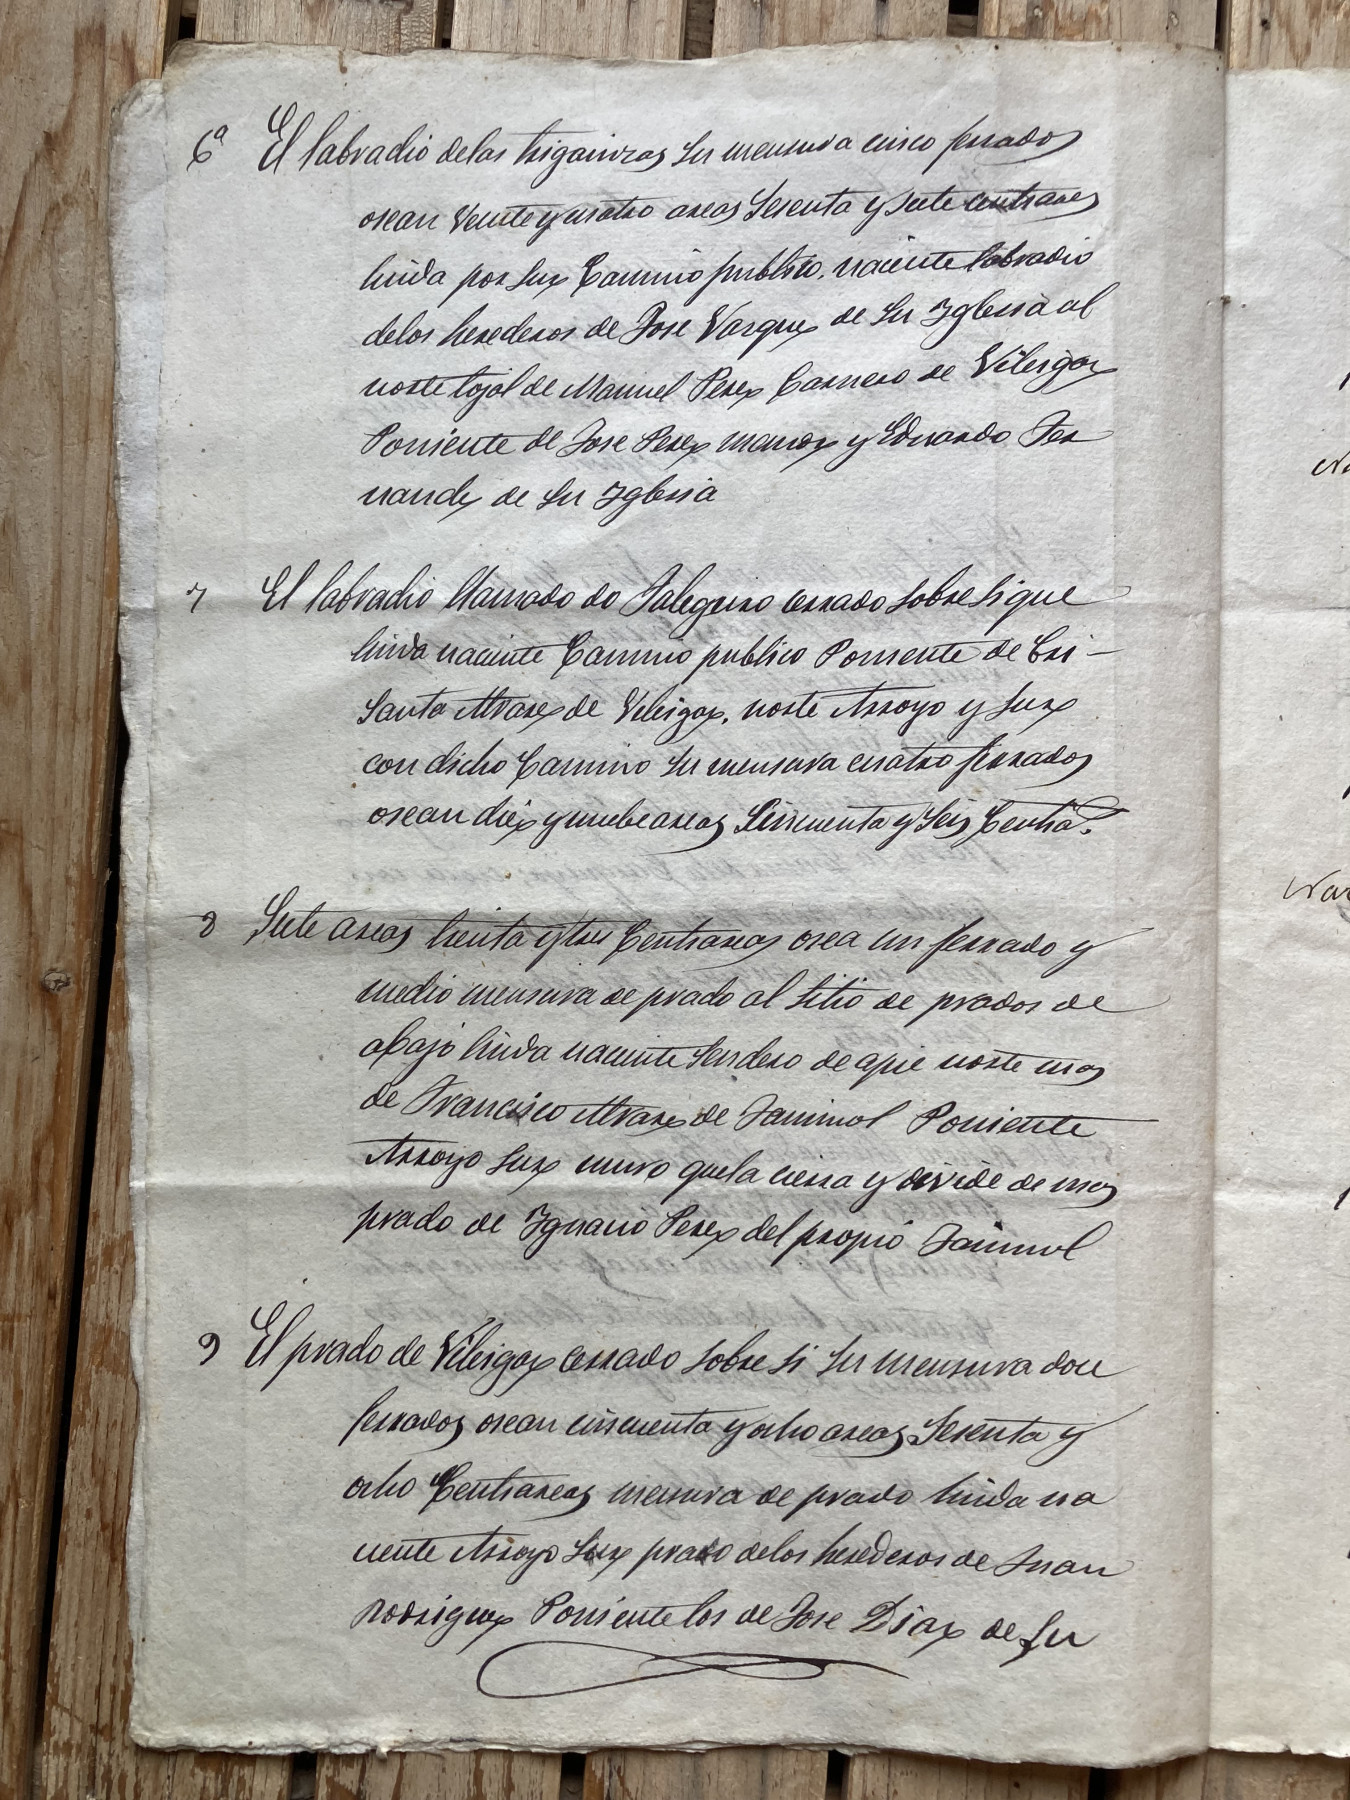 6ª El labradio delas trigainzas su mensura cinco ferrados
osean Veinte y cuatro areas Sesenta y siete centrares
linda por Sux Camino publico, naciente labradio
delos herederos de Jose Vazquez de Su Yglesia al
norte tojal de Manuel Perez Carnero de Vileigax
Poniente de Jose Perez menox y Eduardo Fer
nandez de Su Yglesia
7 El labradio llamado do Salgueiro cerrado sobre si que
linda naciente Camino publico Poniente de Cri-
Santa Alvarez de Vileigax, norte Arroyo y Sux
con dicho Camino su mensura cuatro ferrados
osean diez y nuebe areas Sincuenta y Seis Centiaˢ.
8 Siete areas treinta y tres Centiareas osea un ferrado y
medio mensura de prado al sitio de prados de
abajo linda naciente Sendero de apie norte mas
de Francisco Alvarez de Jaimiol Poniente
Arroyo Sux muro quela cierra y divide de mas
prado de Ygnacio Perez del propio Jaimiol
9 El prado de Vileigax cerrado sobre si su mensura doce
ferrados osean cincuenta y ocho areas Sesenta y
ocho Centiareas mensura de prado linda na
ciente Arroyo Sux prado delos herederos de Juan
Rodriguez Poniente los de Jose Diaz de Su